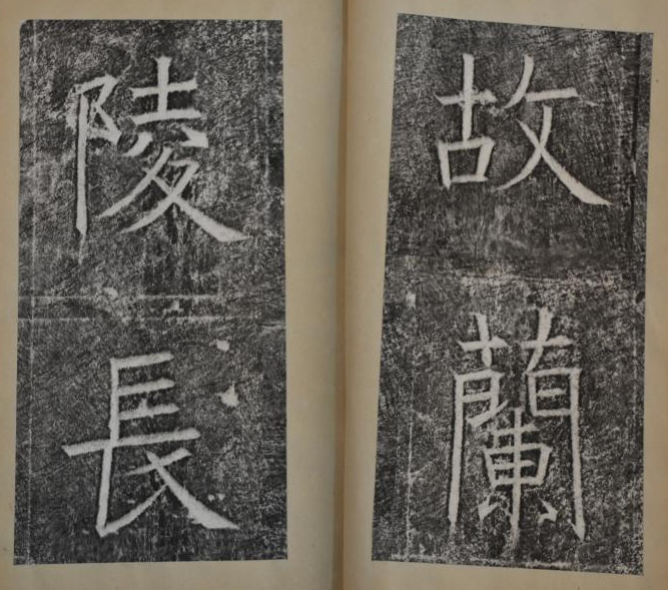 故蘭
陵長